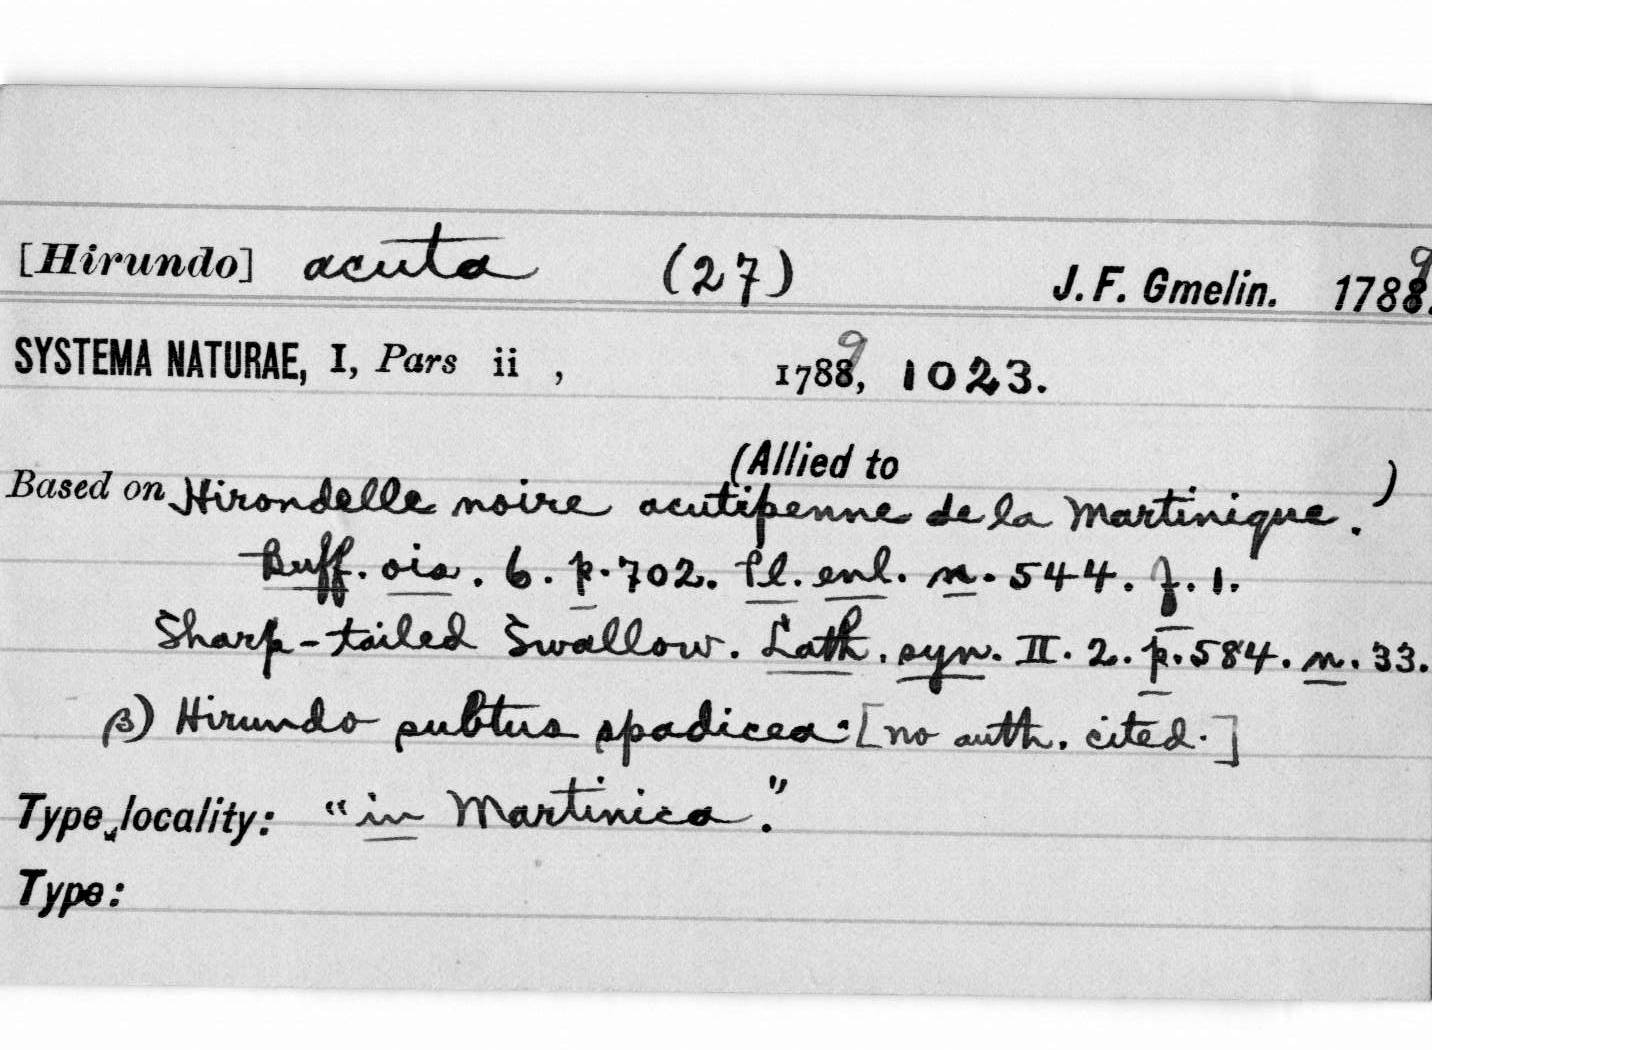 [Hirundo] acuta (27) J. F. Gmelin. 1789.
SYSTEMA NATURAE, I, Pars ii , 1789, 1023.
(Allied to )
Based on Hirondelle noire acutipenne de la Martinique.
Buff. ois. 6. p. 702. Pl. enl. n. 544. f. 1.
Sharp-tailed Swallow. Lath. syn. II. 2. p. 584. n. 33.
β) Hirundo subtus spadicea: [no auth. cited.]
Type locality: "in Martinica."
Type: